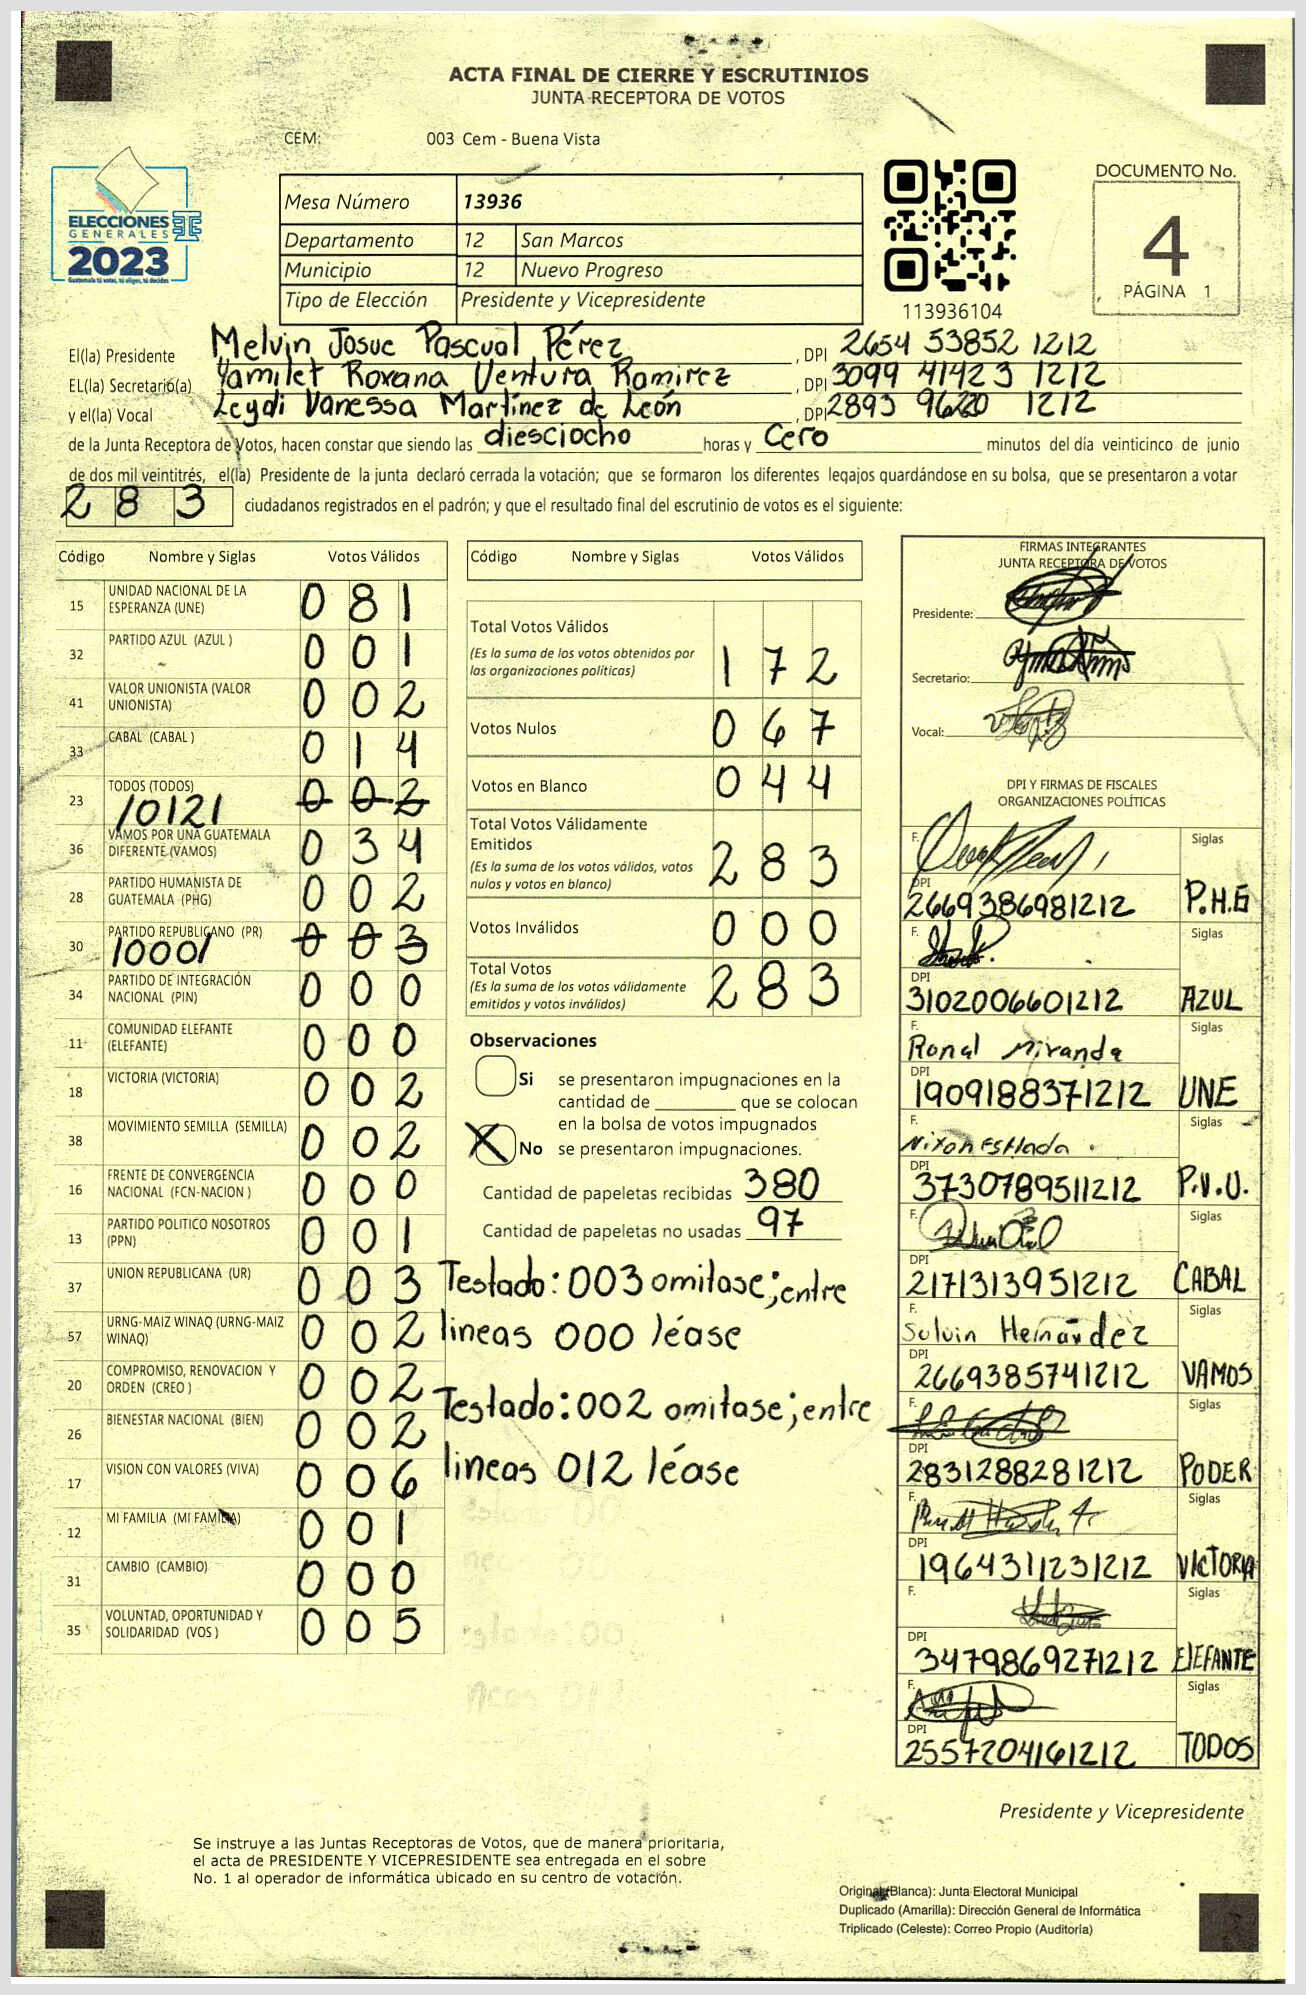 ACTA FINAL DE CIERRE Y ESCRUTINIOS
JUNTA RECEPTORA DE VOTOS
CEM: 003 Cem - Buena Vista
ELECCIONES
GENERALES
2023
Guatemala tú votas, tú eliges, tú decides
Mesa Número 13936
Departamento 12 San Marcos
Municipio 12 Nuevo Progreso
Tipo de Elección Presidente y Vicepresidente
113936104
DOCUMENTO No.
4
PÁGINA 1
El(la) Presidente Melvin Josue Pascual Pérez, DPI 2654 53852 1212
EL(la) Secretario(a) Yamilet Roxana Ventura Ramirez, DPI 3099 41423 1212
y el(la) Vocal Leydi Vanessa Martínez de León, DPI 2893 1212
de la Junta Receptora de Votos, hacen constar que siendo las diesciocho horas y Cero minutos del día veinticinco de junio
de dos mil veintitrés, el(la) Presidente de la junta declaró cerrada la votación; que se formaron los diferentes legajos guardándose en su bolsa, que se presentaron a votar
283 ciudadanos registrados en el padrón; y que el resultado final del escrutinio de votos es el siguiente:
Código Nombre y Siglas Votos Válidos
15 UNIDAD NACIONAL DE LA ESPERANZA (UNE) 081
32 PARTIDO AZUL (AZUL ) 001
41 VALOR UNIONISTA (VALOR UNIONISTA) 002
33 CABAL (CABAL ) 014
23 TODOS (TODOS) 002
/0121
36 VAMOS POR UNA GUATEMALA DIFERENTE (VAMOS) 034
28 PARTIDO HUMANISTA DE GUATEMALA (PHG) 002
30 PARTIDO REPUBLICANO (PR) 003
1000/
34 PARTIDO DE INTEGRACIÓN NACIONAL (PIN) 000
11 COMUNIDAD ELEFANTE (ELEFANTE) 000
18 VICTORIA (VICTORIA) 002
38 MOVIMIENTO SEMILLA (SEMILLA) 002
16 FRENTE DE CONVERGENCIA NACIONAL (FCN-NACION ) 000
13 PARTIDO POLITICO NOSOTROS (PPN) 001
37 UNION REPUBLICANA (UR) 003
57 URNG-MAIZ WINAQ (URNG-MAIZ WINAQ) 002
20 COMPROMISO, RENOVACION Y ORDEN (CREO ) 002
26 BIENESTAR NACIONAL (BIEN) 002
17 VISION CON VALORES (VIVA) 006
12 MI FAMILIA (MI FAMILIA) 001
31 CAMBIO (CAMBIO) 000
35 VOLUNTAD, OPORTUNIDAD Y SOLIDARIDAD (VOS ) 005
Código Nombre y Siglas Votos Válidos
Total Votos Válidos 172
(Es la suma de los votos obtenidos por
las organizaciones políticas)
Votos Nulos 067
Votos en Blanco 044
Total Votos Válidamente
Emitidos 283
(Es la suma de los votos válidos, votos
nulos y votos en blanco)
Votos Inválidos 000
Total Votos 283
(Es la suma de los votos válidamente
emitidos y votos inválidos)
Observaciones
Si se presentaron impugnaciones en la
cantidad de ________ que se colocan
en la bolsa de votos impugnados
X No se presentaron impugnaciones.
Cantidad de papeletas recibidas 380
Cantidad de papeletas no usadas 97
Testado: 003 omitase; entre
lineas 000 léase
Testado: 002 omitase; entre
lineas 012 léase
FIRMAS INTEGRANTES
JUNTA RECEPTORA DE VOTOS
Presidente:
Secretario:
Vocal:
DPI Y FIRMAS DE FISCALES
ORGANIZACIONES POLÍTICAS
F. Siglas
DPI 2669386981212 P.H.G
F. Siglas
DPI 3102006601212 AZUL
F. Ronal Miranda Siglas
DPI 1909188371212 UNE
F. Nixon Estrada Siglas
DPI 3730789511212 P.V.U.
F. Siglas
DPI 2171313951212 CABAL
F. Selvin Hernández Siglas
DPI 2669385741212 VAMOS
F. Siglas
DPI 2831288281212 PODER
F. Siglas
DPI 1964311231212 VICTORIA
F. Siglas
DPI 3479869271212 ElEFANTE
F. Siglas
DPI 2557204161212 TODOS
Presidente y Vicepresidente
Se instruye a las Juntas Receptoras de Votos, que de manera prioritaria,
el acta de PRESIDENTE Y VICEPRESIDENTE sea entregada en el sobre
No. 1 al operador de informática ubicado en su centro de votación.
Original (Blanca): Junta Electoral Municipal
Duplicado (Amarilla): Dirección General de Informática
Triplicado (Celeste): Correo Propio (Auditoría)